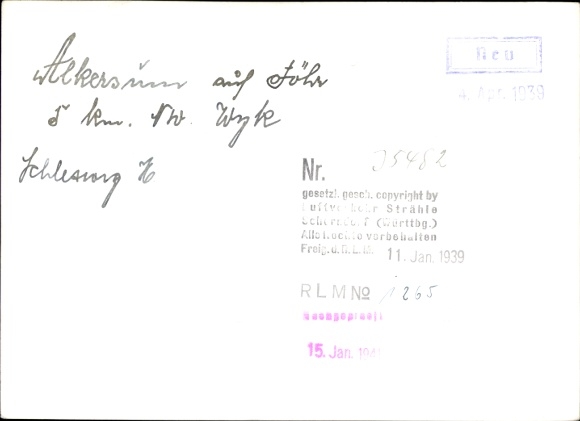 Alkersum auf Föhr
5 km. NW. Wyk
Schleswig H
Neu
4. Apr. 1939
Nr. 35482
gesetzl. gesch. copyright by
Luftverkehr Strähle
Schorndorf (Württbg.)
Alle Rechte vorbehalten
Freig. d. R.L.M. 11. Jan. 1939
RLM No 1265
Nachgeprüft
15. Jan.